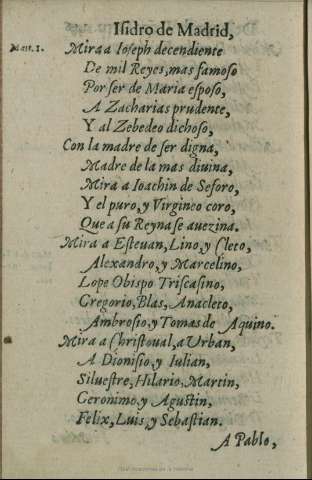 Isidro de Madrid,
Matt. 1.
Mira a Ioseph decendiente
De mil Reyes, mas famoso
Por ser de Maria esposo,
A Zacharias prudente,
Y al Zebedeo dichoso,
Con la madre de ser digna,
Madre de la mas diuina,
Mira a Ioachin de Seforo,
Y el puro, y Virgineo coro,
Que a su Reyna se auezina.
Mira a Esteuan, Lino, y Cleto,
Alexandro, y Marcelino,
Lope Obispo Triscasino,
Gregorio, Blas, Anacleto,
Ambrosio, y Tomas de Aquino.
Mira a Christoual, a Urban,
A Dionisio, y Iulian,
Siluestre, Hilario, Martin,
Geronimo, y Agustin,
Felix, Luis, y Sebastian.
A Pablo,